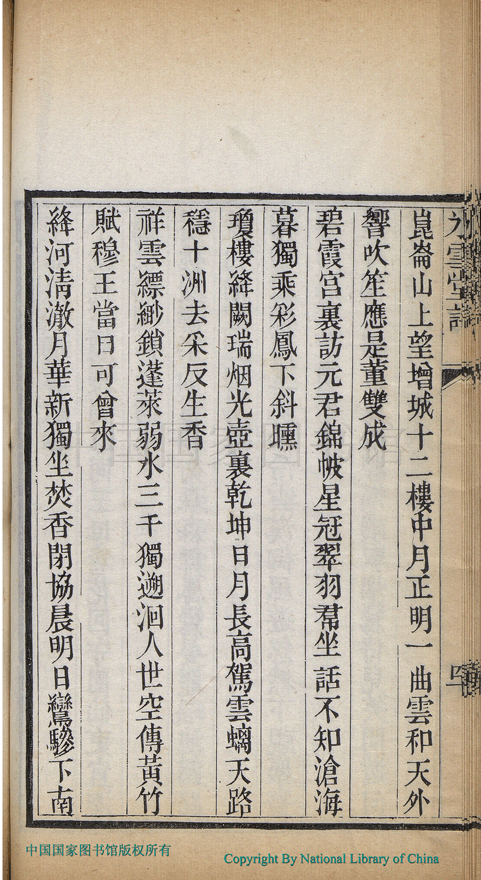 崑崙山上望增城十二樓中月正明一曲雲和天外
響吹笙應是董雙成
碧霞宮裏訪元君錦帔星冠翠羽帬坐話不知滄海
暮獨乘彩鳳下斜曛
瓊樓絳闕瑞烟光壺裏乾坤日月長高駕雲螭天路
穩十洲去采反生香
祥雲縹緲鎖蓬萊弱水三千獨遡洄人世空傳黃竹
賦穆王當日可曾來
絳河清澈月華新獨坐焚香閉協晨明日鸞驂下南
中国国家图书馆版权所有
Copyright By National Library of China